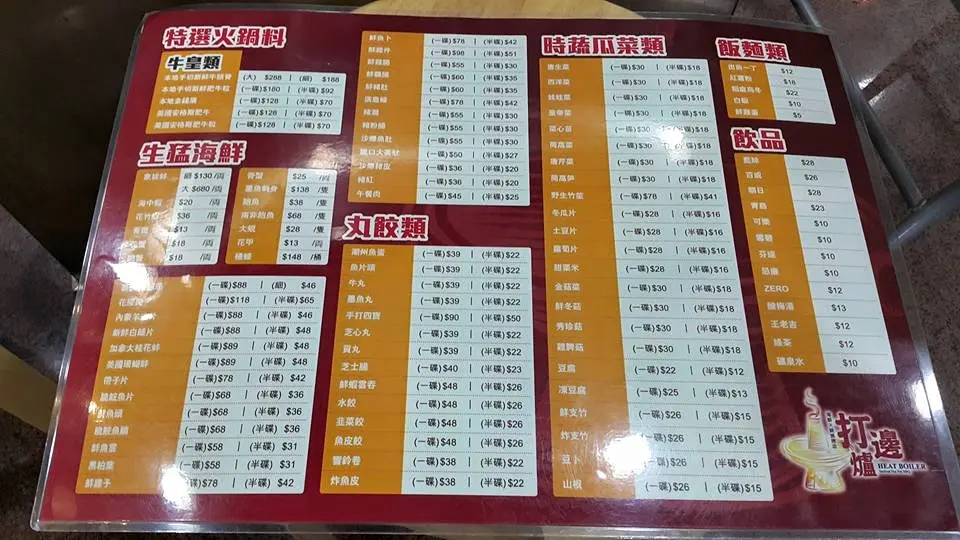 特選火鍋料
牛皇類
本地手切新鮮牛頸脊 (大) $288 | (細) $188
本地手切新鮮肥牛粒 (一碟)$180 | (半碟)$92
本地金錢𦟌 (一碟)$128 | (半碟)$70
美國安格斯肥牛 (一碟)$128 | (半碟)$70
美國安格斯肥牛粒 (一碟)$128 | (半碟)$70
生猛海鮮
象拔蚌 細 $130 /両
大 $680 /両
海中蝦 $20 /両
花竹蝦 $36 /両
$13 /両
$18 /両
骨蟹 $25 /両
$138 /隻
鮑魚 $38 /隻
南非鮑魚 $68 /隻
大蜆 $28 /隻
花甲 $13 /両
桶蠔 $148 /桶
(一碟)$88 | (細) $46
(一碟)$118 | (半碟)$65
內蒙羊 片 (一碟)$88 | (半碟) $46
新鮮白鱔片 (一碟)$88 | (半碟) $48
加拿大桂花蚌 (一碟)$89 | (半碟) $48
美國珊瑚蚌 (一碟)$89 | (半碟) $48
帶子片 (一碟)$78 | (半碟) $42
脆鯇魚片 (一碟)$68 | (半碟) $36
魚頭 (一碟)$68 | (半碟) $36
脆鯇魚腩 (一碟)$68 | (半碟) $36
鮮魚雲 (一碟)$58 | (半碟) $31
黑柏葉 (一碟)$58 | (半碟) $31
鮮雞子 (一碟)$78 | (半碟) $42
鮮魚卜 (一碟)$78 | (半碟)$42
鮮雞件 (一碟)$98 | (半碟)$51
鮮鵝腸 (一碟)$55 | (半碟)$30
鮮鵝腸 (一碟)$60 | (半碟)$35
鮮豬肚 (一碟)$60 | (半碟)$35
(一碟)$78 | (半碟)$42
豬潤 (一碟)$55 | (半碟)$30
豬粉腸 (一碟)$55 | (半碟)$30
沙爆魚肚 (一碟)$55 | (半碟)$30
脆口大英肚 (一碟)$50 | (半碟)$27
沙爆豬皮 (一碟)$36 | (半碟)$20
豬紅 (一碟)$36 | (半碟)$20
午餐肉 (一碟)$45 | (半碟)$25
丸餃類
潮州魚蛋 (一碟)$39 | (半碟)$22
魚片頭 (一碟)$39 | (半碟)$22
牛丸 (一碟)$39 | (半碟)$22
墨魚丸 (一碟)$39 | (半碟)$22
手打四寶 (一碟)$90 | (半碟)$50
芝心丸 (一碟)$39 | (半碟)$22
貢丸 (一碟)$39 | (半碟)$22
芝士腸 (一碟)$40 | (半碟)$23
鮮蝦雲吞 (一碟)$48 | (半碟)$26
水餃 (一碟)$48 | (半碟)$26
韭菜餃 (一碟)$48 | (半碟)$26
魚皮餃 (一碟)$48 | (半碟)$26
響鈴卷 (一碟)$38 | (半碟)$22
炸魚皮 (一碟)$38 | (半碟)$22
時蔬瓜菜類
唐生菜 (一碟)$30 | (半碟)$18
西洋菜 (一碟)$30 | (半碟)$18
娃娃菜 (一碟)$30 | (半碟)$18
皇帝菜 (一碟)$30 | (半碟)$18
菜心苗 (一碟)$30 | (半碟)$18
茼蒿菜 (一碟)$30 | (半碟)$18
唐芹菜 (一碟)$30 | (半碟)$18
萵筍 (一碟)$30 | (半碟)$18
野生竹笙 (一碟)$78 | (半碟)$41
冬瓜片 (一碟)$28 | (半碟)$16
土豆片 (一碟)$28 | (半碟)$16
蘿蔔片 (一碟)$28 | (半碟)$16
甜粟米 (一碟)$28 | (半碟)$16
金菇菜 (一碟)$30 | (半碟)$18
鮮冬菇 (一碟)$30 | (半碟)$18
秀珍菇 (一碟)$30 | (半碟)$18
雞髀菇 (一碟)$30 | (半碟)$18
豆腐 (一碟)$22 | (半碟)$12
凍豆腐 (一碟)$25 | (半碟)$13
鮮支竹 (一碟)$26 | (半碟)$15
炸支竹 (一碟)$26 | (半碟)$15
豆卜 (一碟)$26 | (半碟)$15
山根 (一碟)$26 | (半碟)$15
飯麵類
出前一丁 $12
紅薯粉 $18
稻庭烏冬 $22
白飯 $10
鮮雞蛋 $5
飲品
藍妹 $28
百威 $26
朝日 $28
青島 $23
可樂 $10
雪碧 $10
芬達 $10
忌廉 $10
ZERO $12
酸梅湯 $13
王老吉 $12
綠茶 $12
礦泉水 $10
打邊爐
HEAT BOILER